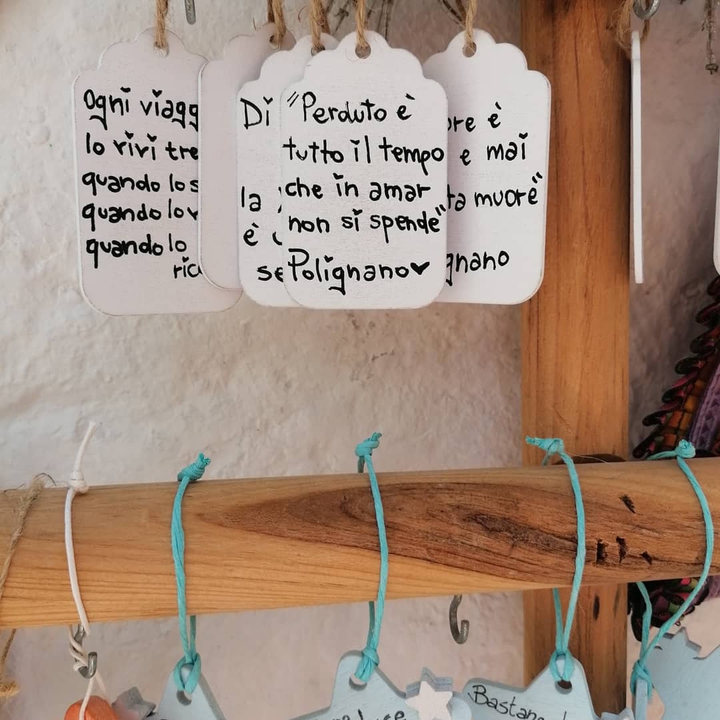 Ogni viagg
lo rivi tre
quando lo s
quando lo v
quando lo
ric
Di
la
è
se
"Perduto è
tutto il tempo
che in amar
non si spende"
Polignano♥
ore è
e mai
ta muore"
gnano
Bastano